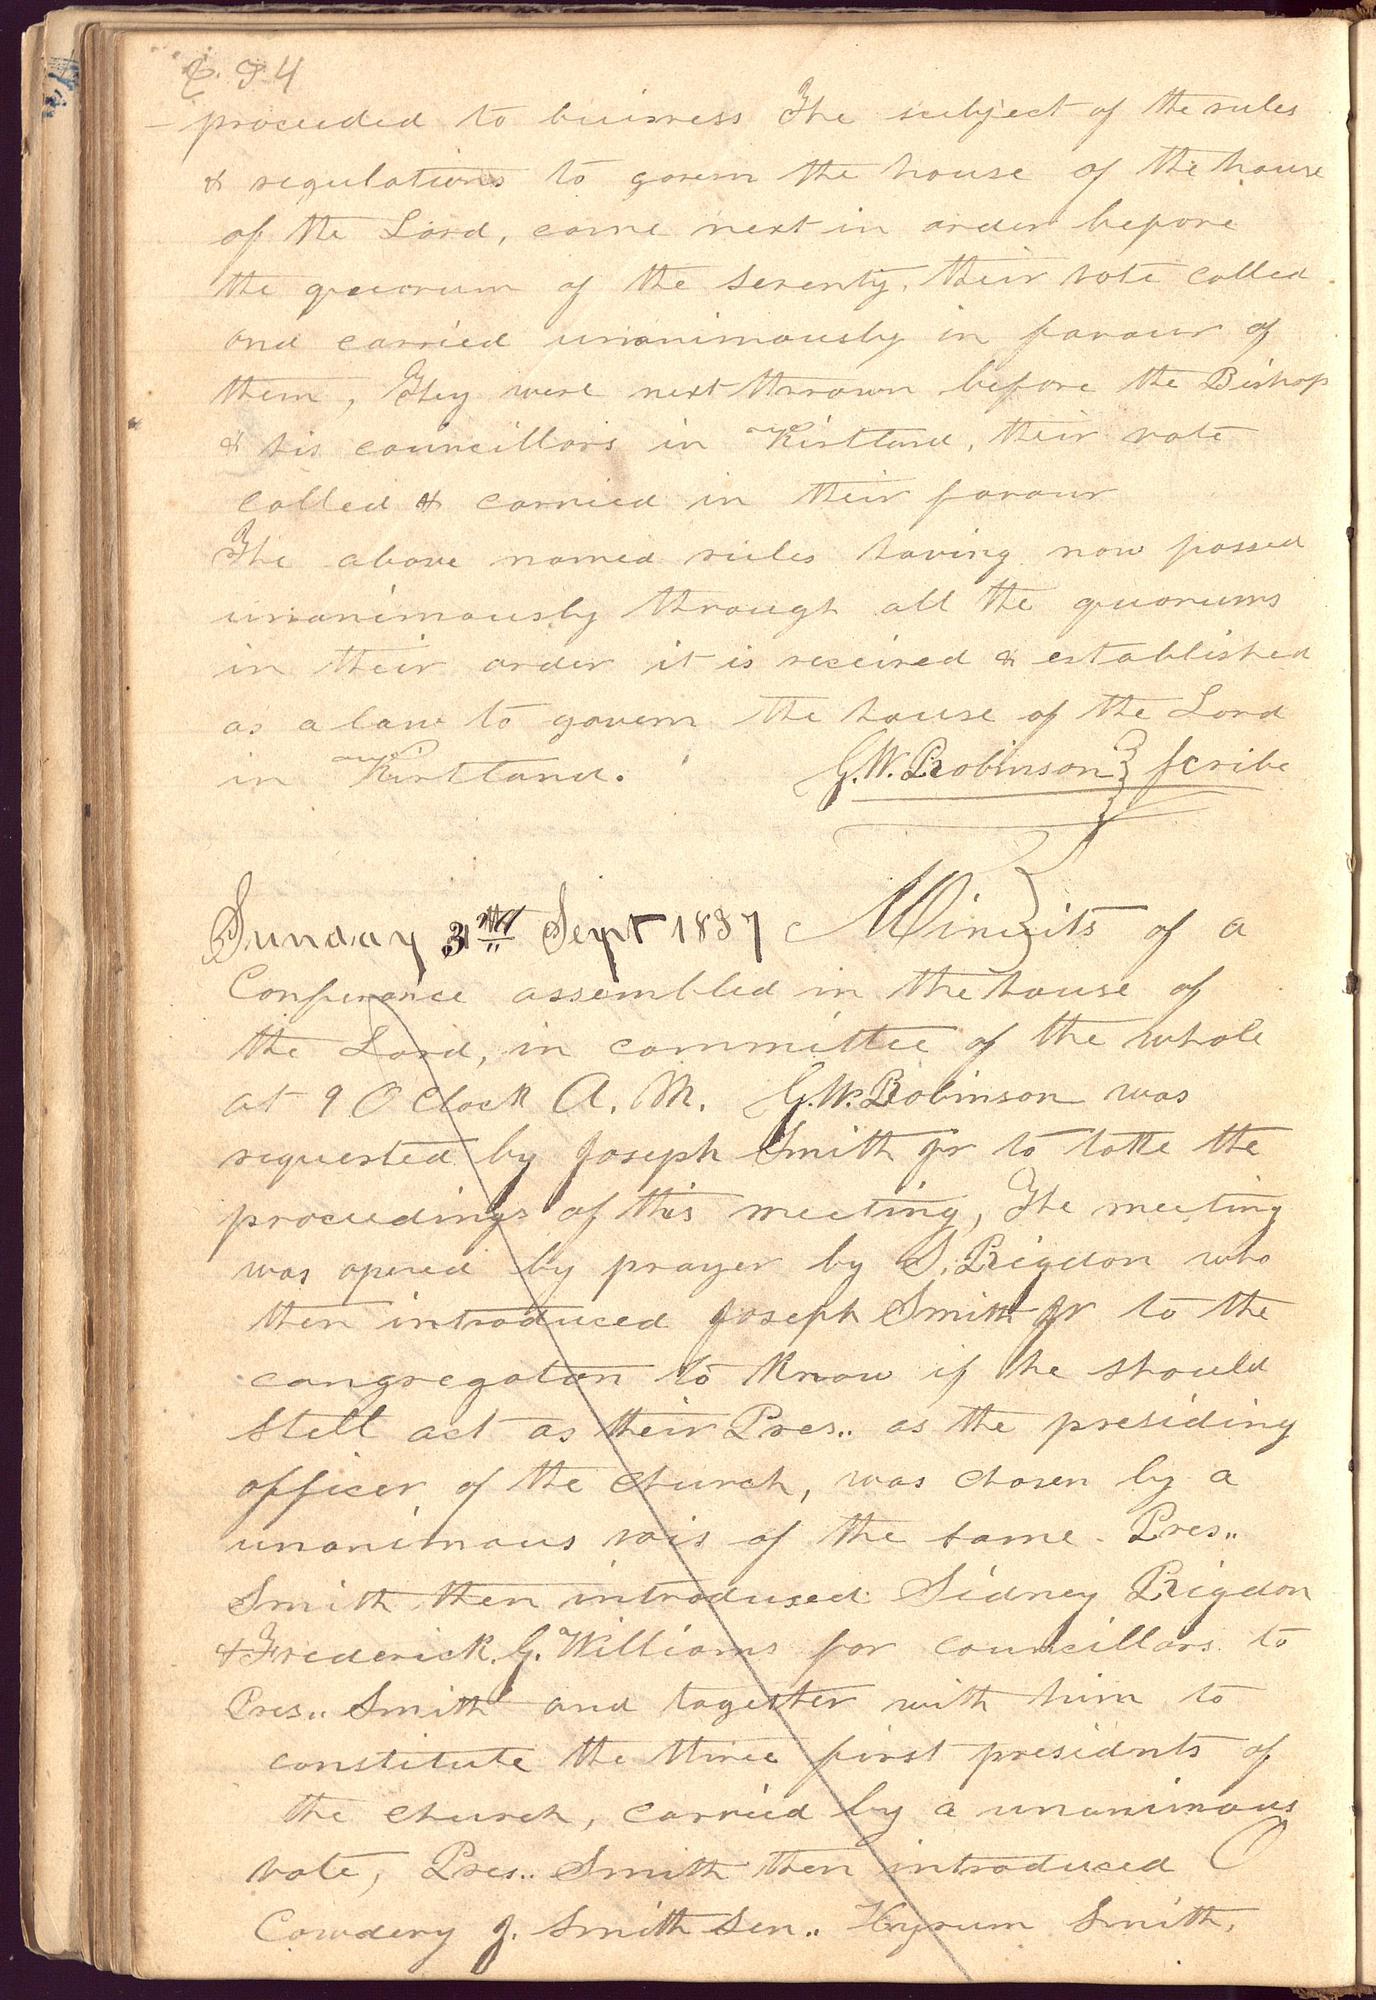 234
proceeded to buisness The subject of the rules
& regulations to govern the house of the house
of the Lord, came next in order before
the quorum of the seventy, their vote called
and carried unanimously in favour of
them, They were next thrown before the Bishop
& his councillors in Kirtland, their vote
called & carried in their favour
The above named rules having now passed
unanimously through all the quorums
in their order it is received & established
as a law to govern the house of the Lord
in Kirtland. G. W. Robinson } scribe
Sunday Sept 1837 Minuits of a
Conferance assembled in the house of
the Lord, in committee of the whole
at 9 O Clock A. M. G. W. Robinson was
requested by Joseph Smith Jr to take the
proceedings of this meeting, The meeting
was opened by prayer by S. Rigdon who
then introduced Joseph Smith Jr to the
congregation to know if he should
still act as their Pres.. as the presiding
officer of the church, was chosen by a
unanimous vois of the same. Pres..
Smith then introduced Sidney Rigdon
& Frederick. G. Williams for councillors to
Pres.. Smith and together with him to
constitute the three first presidnts of
the church, carried by a unanimous
vote, Pres.. Smith then introduced O
Cowdery J. Smith Sen.. Hyrum Smith,